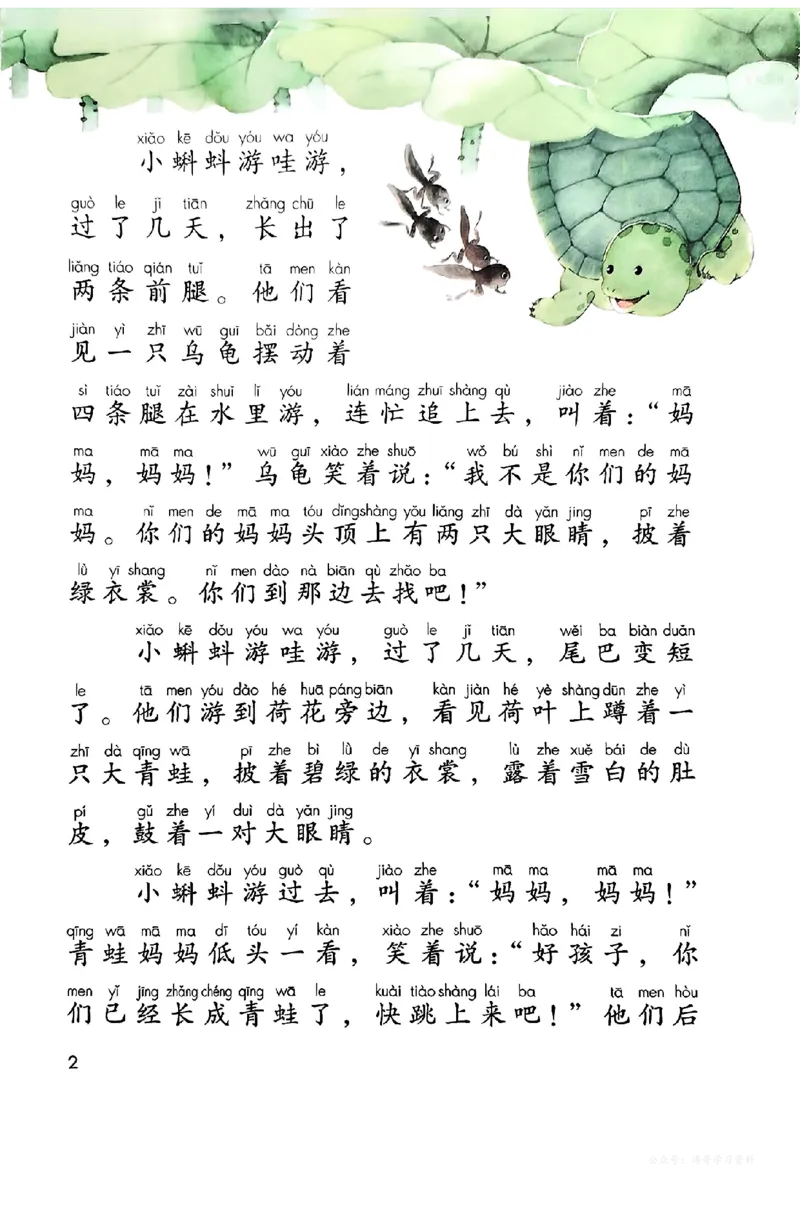 xiǎo kē dǒu yóu wa yóu
小蝌蚪游哇游，
guò le jǐ tiān zhǎng chū le
过了几天，长出了
liǎng tiáo qián tuǐ tā men kàn
两条前腿。他们看
jiàn yì zhī wū guī bǎi dòng zhe
见一只乌龟摆动着
sì tiáo tuǐ zài shuǐ lǐ yóu lián máng zhuī shàng qù jiào zhe mā
四条腿在水里游，连忙追上去，叫着：“妈
ma mā ma wū guī xiào zhe shuō wǒ bú shì nǐ men de mā
妈，妈妈！”乌龟笑着说：“我不是你们的妈
ma nǐ men de mā ma tóu dǐng shàng yǒu liǎng zhī dà yǎn jing pī zhe
妈。你们的妈妈头顶上有两只大眼睛，披着
lǜ yī shang nǐ men dào nà biān qù zhǎo ba
绿衣裳。你们到那边去找吧！”
xiǎo kē dǒu yóu wa yóu guò le jǐ tiān wěi ba biàn duǎn
小蝌蚪游哇游，过了几天，尾巴变短
le tā men yóu dào hé huā páng biān kàn jiàn hé yè shàng dūn zhe yì
了。他们游到荷花旁边，看见荷叶上蹲着一
zhī dà qīng wā pī zhe bì lǜ de yī shang lù zhe xuě bái de dù
只大青蛙，披着碧绿的衣裳，露着雪白的肚
pí gǔ zhe yí duì dà yǎn jing
皮，鼓着一对大眼睛。
xiǎo kē dǒu yóu guò qù jiào zhe mā ma mā ma
小蝌蚪游过去，叫着：“妈妈，妈妈！”
qīng wā mā ma dī tóu yí kàn xiào zhe shuō hǎo hái zi nǐ
青蛙妈妈低头一看，笑着说：“好孩子，你
men yǐ jīng zhǎng chéng qīng wā le kuài tiào shàng lái ba tā men hòu
们已经长成青蛙了，快跳上来吧！”他们后
2